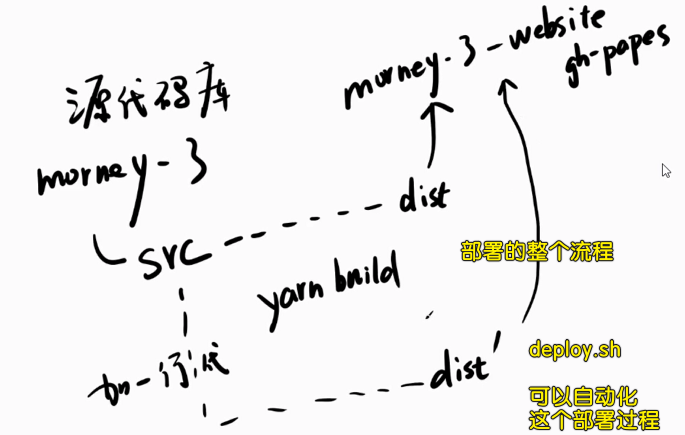 源代码库
morney-3
src
dist
morney-3-website
gh-papes
yarn build
加一行代
dist'
部署的整个流程
deploy.sh
可以自动化
这个部署过程